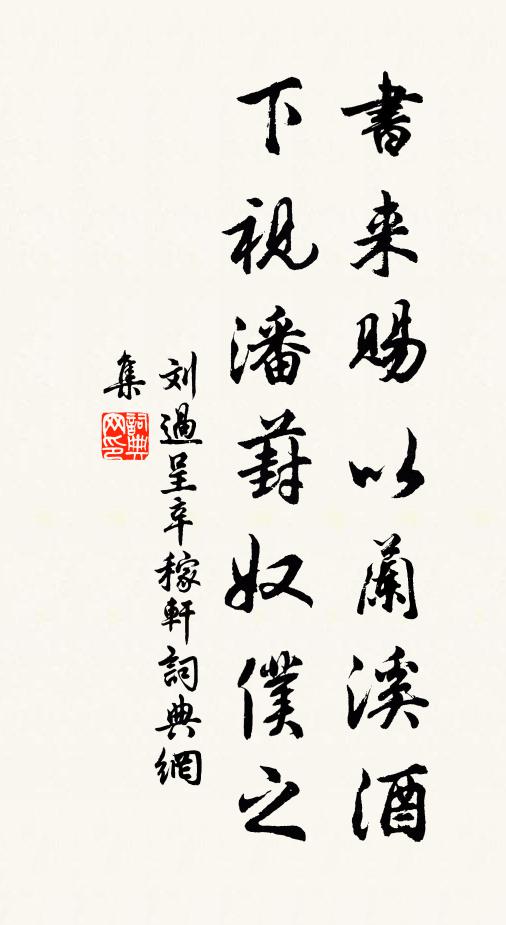 書来賜以蘭溪酒
下視潘葑奴僕之
刘過呈辛稼軒詞典網
集
詞典网印